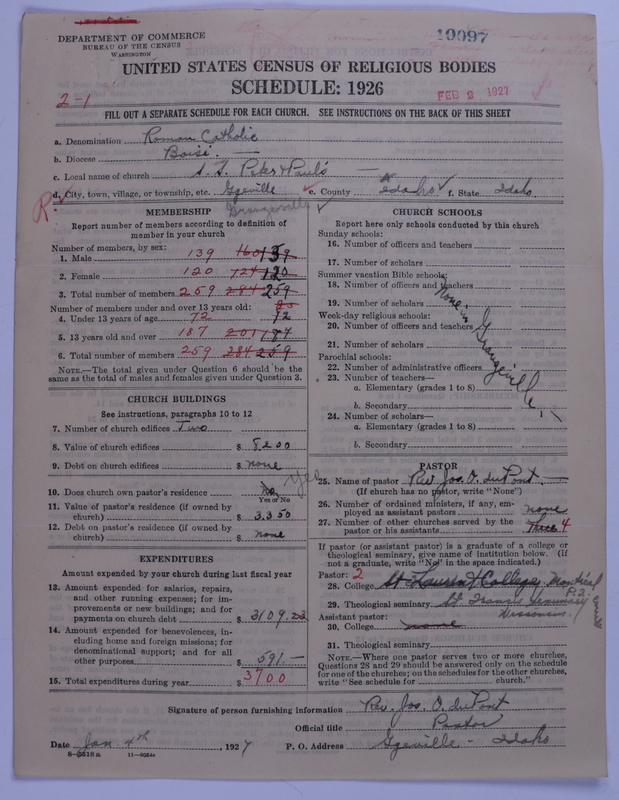 DEPARTMENT OF COMMERCE
BUREAU OF THE CENSUS
WASHINGTON
19097
UNITED STATES CENSUS OF RELIGIOUS BODIES
SCHEDULE: 1926
2-1
FEB 2 1927
FILL OUT A SEPARATE SCHEDULE FOR EACH CHURCH. SEE INSTRUCTIONS ON THE BACK OF THIS SHEET
a. Denomination Roman Catholic
b. Diocese Boise
c. Local name of church S.S. Peter & Paul's
d. City, town, village, or township, etc. Ggeville e. County Idaho f. State Idaho
R. Grangeville
MEMBERSHIP
Report number of members according to definition of member in your church
Number of members, by sex:
1. Male 139 160 139
2. Female 120 124 120
3. Total number of members 259 284 259
Number of members under and over 13 years old:
4. Under 13 years of age 72 72
5. 13 years old and over 187 201 187
6. Total number of members 259 284 259
NOTE.—The total given under Question 6 should be the same as the total of males and females given under Question 3.
CHURCH BUILDINGS
See instructions, paragraphs 10 to 12
7. Number of church edifices Two
8. Value of church edifices $ 8200
9. Debt on church edifices $ none
10. Does church own pastor's residence No Yes
Yes or No
11. Value of pastor's residence (if owned by
church) $ 3350
12. Debt on pastor's residence (if owned by
church) $ none
EXPENDITURES
Amount expended by your church during last fiscal year
13. Amount expended for salaries, repairs,
and other running expenses; for im-
provements or new buildings; and for
payments on church debt $ 3109.23
14. Amount expended for benevolences, in-
cluding home and foreign missions; for
denominational support; and for all
other purposes $ 591.—
15. Total expenditures during year $ 3700
CHURCH SCHOOLS
Report here only schools conducted by this church
Sunday schools:
16. Number of officers and teachers
17. Number of scholars
Summer vacation Bible schools:
18. Number of officers and teachers
19. Number of scholars
Week-day religious schools:
20. Number of officers and teachers
21. Number of scholars
Parochial schools:
22. Number of administrative officers
23. Number of teachers—
a. Elementary (grades 1 to 8)
b. Secondary
24. Number of scholars—
a. Elementary (grades 1 to 8)
b. Secondary
None in Grangeville
PASTOR
25. Name of pastor Rev. Jos. O. duPont
(If church has no pastor, write "None")
26. Number of ordained ministers, if any, em-
ployed as assistant pastors none
27. Number of other churches served by the
pastor or his assistants Three 4
If pastor (or assistant pastor) is a graduate of a college or
theological seminary, give name of institution below. (If
not a graduate, write "No" in the space indicated.)
Pastor: 2
28. College St. Laurent College, Montreal P.Q.
29. Theological seminary St. Francis Seminary
Wisconsin
Assistant pastor:
30. College none
31. Theological seminary
NOTE.—Where one pastor serves two or more churches,
Questions 28 and 29 should be answered only on the schedule
for one of the churches; on the schedules for the other churches,
write "See schedule for church."
Signature of person furnishing information Rev. Jos. O. duPont
Official title Pastor
Date Jan 4th, 1927 P. O. Address Ggeville - Idaho